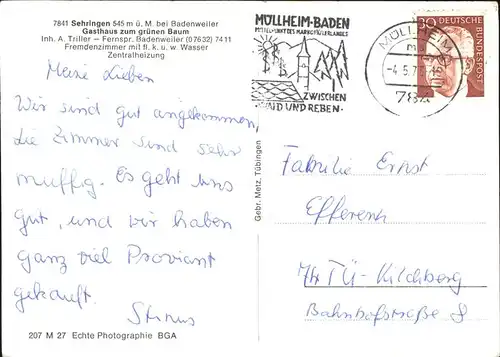 7841 Sehringen 545 m ü. M. bei Badenweiler
Gasthaus zum grünen Baum
Inh. A. Triller — Fernspr. Badenweiler (07632) 7411
Fremdenzimmer mit fl. k. u. w. Wasser
Zentralheizung
Meine Lieben
Wir sind gut angekommen,
die Zimmer sind sehr
muffig. Es geht uns
gut, und wir haben
ganz viel Proviant
gekauft.
207 M 27 Echte Photographie BGA
Gebr. Metz, Tübingen
MÜLLHEIM-BADEN
MITTELPUNKT DES MARKGRÄFLERLANDES
ZWISCHEN
WALD UND REBEN
MÜLLHEIM
784
30
DEUTSCHE
BUNDESPOST
Familie Ernst
Efferenn
TÜ-Kilchberg
Bahnhofstraße 8